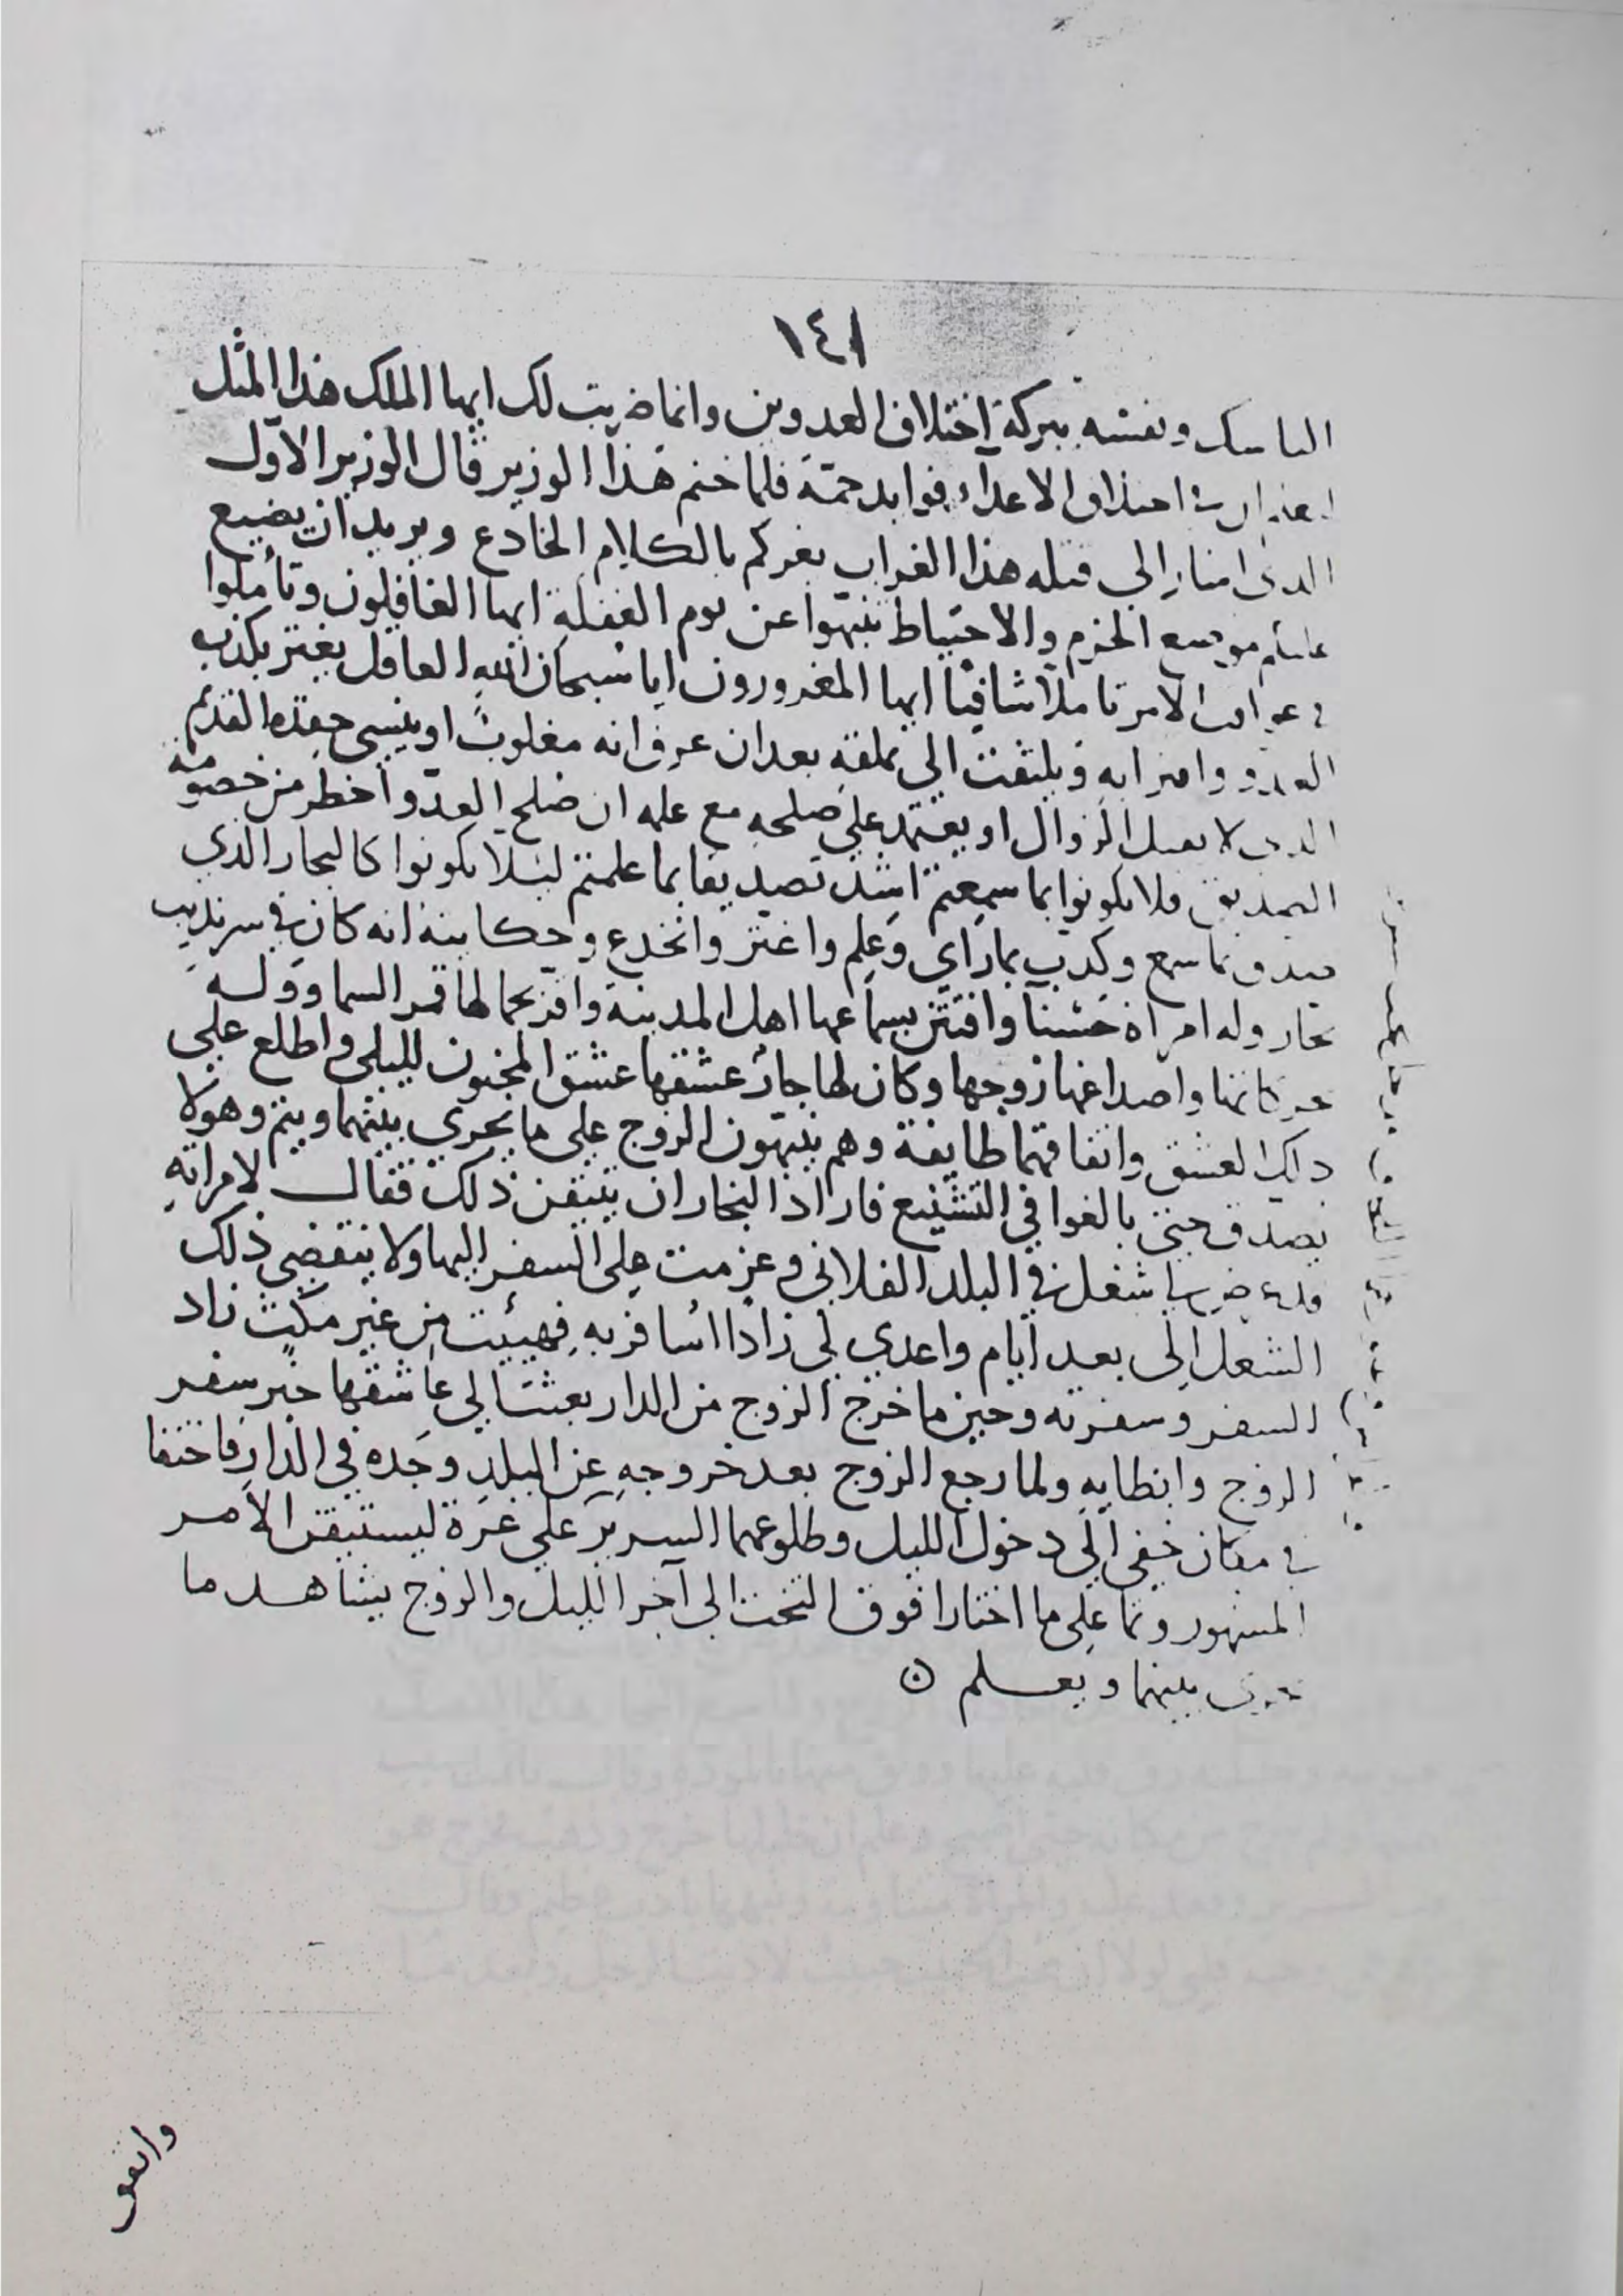 ١٤١
الناسك ونفسه ببركة اختلاف العدوين وانما ضربت لك ايها الملك هذا المثل
ان في اختلاف الاعداء فوايد جمّة فلما ختم هذا الوزير قال الوزير الاوّل
الذي اشار الى قتله هذا الغراب يغركم بالكلام الخادع ويريد ان يضيع
عليكم موضع الحزم والاحتياط تنبهوا عن نوم الغفلة ايها الغافلون وتأملوا
في عواقب الامر تاملا شافيا ايها المغرورون ايا سبحان الله العاقل يغتر بكذب
العدو وافترايه ويلتفت الى تملقه بعد ان عرف انه مغلوب او ينسى حقده القديم
الذي لا يقبل الزوال او يعتمد على صلحه مع علمه ان صلح العدو أخطر من خصومته
الصديق فلا تكونوا بما سمعتم اشد تصديقا بما علمتم ليلا تكونوا كالنجار الذي
صدق بما سمع وكذب بما رآي وعلم واغتر وانخدع وحكايته انه كان في سرنديب
نجار وله امراة حسنآ وافتتن بسماعها اهل المدينة واقر بجمالها قمر السما ووله
حركاتها واصداغها زوجها وكان لها جار عشقها عشق المجنون لليلى واطلع على
ذلك العشق واتفاقهما طايفة وهم ينبهون الزوج على ما يجري بينهما ويتم وهو لا
يصدق حتى بالغوا في التشنيع فاراد النجار ان يتيقن ذلك فقال لامراته
قد عرض لي شغل في البلد الفلاني وعزمت على السفر اليها ولا ينقضي ذلك
الشغل الى بعد ايام واعدي لي زادا اسافر به فهيئت من غير مكث زاد
السفر وسفرته وحين ما خرج الزوج من الدار بعثت الى عاشقها خبر سفر
الزوج وابطايه ولما رجع الزوج بعد خروجه عن البلد وجده في الدار فاختفا
في مكان خفي الى دخول الليل وطلوعهما السرير على غرة ليستيقن الامر
المشهور ونما على ما اختارا فوق التخت الى آخر الليل والزوج يشاهد ما
جرى بينهما ويعلم
واتفق